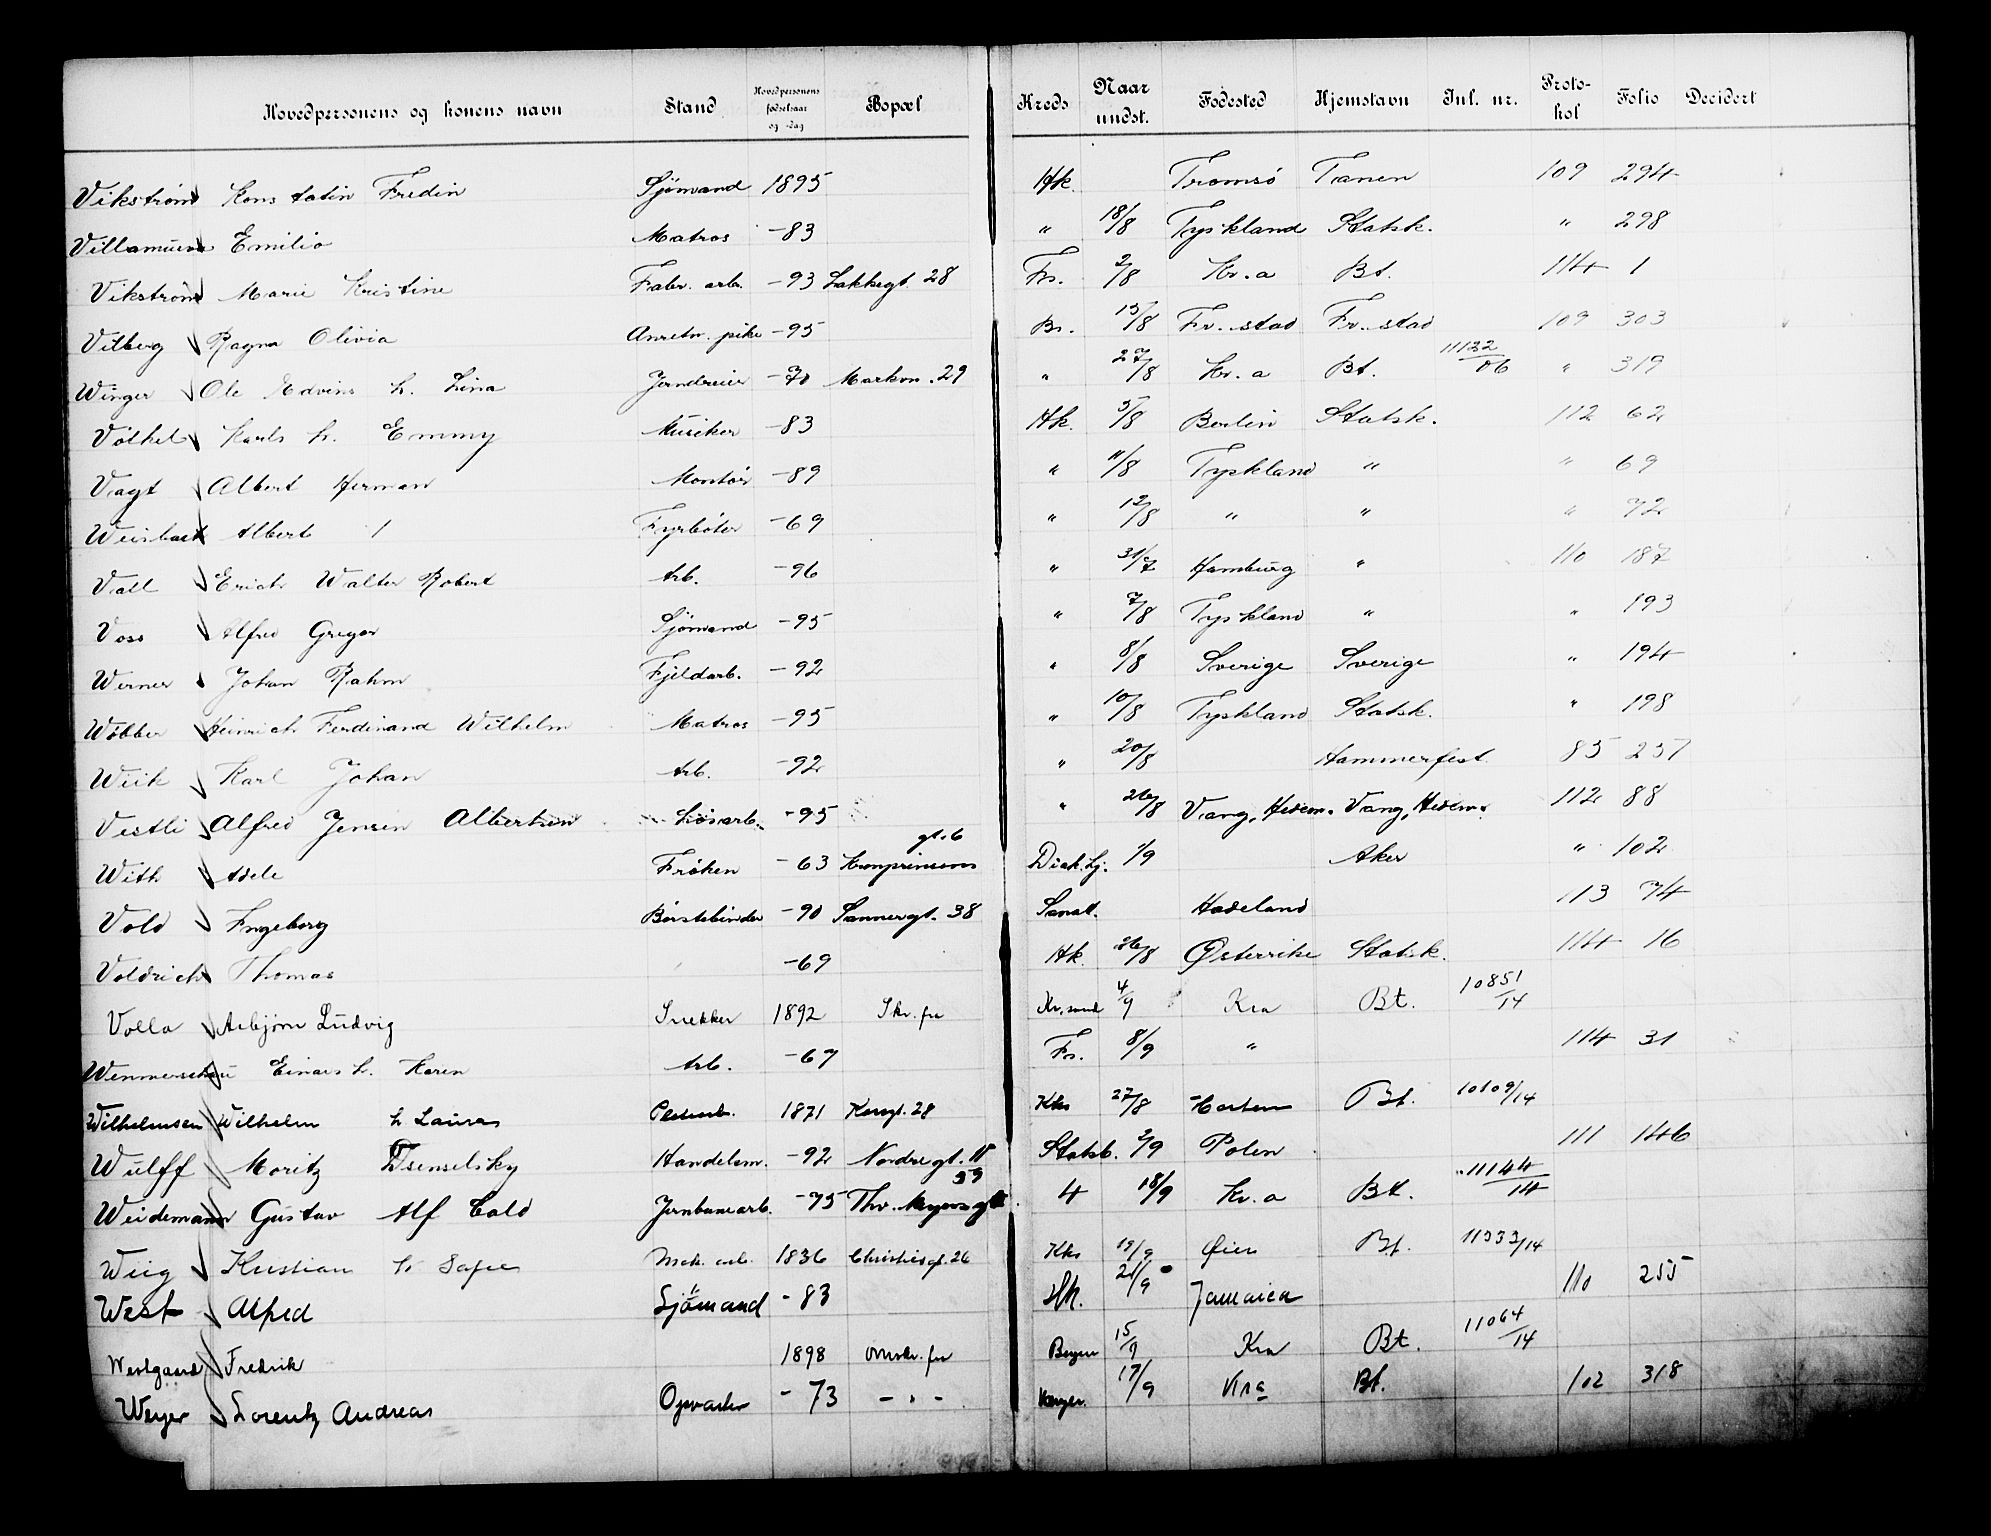 Hovedpersonens og konens navn Stand Hovedpersonens fødselsaar og -dag Bopæl Kreds Naar undst. Fødested Hjemstavn Inl. nr. Proto-kol Folio Decidert
Vikstrøm Konstatin Fredin Sjømand 1895 Hk. Tromsø Tanen 109 294
Villamueva Emilio Matros -83 " 18/8 Tyskland Statsk. " 298
Vikstrøm Marie Kristine Fabr. arb. -93 Lakkegt. 28 Fr. 2/8 Kr.a Bt. 114 1
Vilberg Ragna Olivia Anretn. pike -95 Br. 15/8 Fr.stad Fr.stad 109 303
Winger Ole Edvins h. Lina Jerndreier -70 Markvn. 29 " 27/8 Kr.a Bt. 11132/06 " 319
Völkel Karls h. Emmy Musiker -83 Hk. 5/8 Berlin Statsk. 112 62
Vagt Albert Herman Montør -89 " 11/8 Tyskland " " 69
Albert Fyrbøter -69 " 12/8 " " " 72
Vall Erich Walter Robert Arb. -96 " 31/7 Hamburg " 110 187
Voss Alfred Gregor Sjømand -95 " 7/8 Tyskland " " 193
Werner Johan Rahm Fjeldarb. -92 " 8/8 Sverige Sverige " 194
Wöbber Heinrich Ferdinand Wilhelm Matros -95 " 10/8 Tyskland Statsk. " 198
Wiik Karl Johan Arb. -92 " 20/8 Hammerfest 85 251
Vestli Alfred Jensen Albertsen Løsarb. -95 " 26/8 Vang, Hedem. Vang, Hedem. 112 88
With Adele Frøken -63 Kronprinsens gt. 6 Diak.hj. 1/9 Aker " 102
Vold Ingeborg Børstebinder -90 Sannergt. 38 Sanat. Hadeland 113 74
Voldrich Thomas -69 Hk. 26/8 Østerrike Statsk. 114 16
Volla Asbjørn Ludvig Snekker 1892 Skr. fra Kr.sand 4/9 Kra Bt. 10851/14
Einars h. Karen Arb. -67 Fr. 8/9 " 114 31
Wilhelmsen Wilhelm h Laura 1871 28 Kks 27/8 Horten Bt. 10109/14
Wulff Moritz Handelsm. -92 Nordregt. Statsb. 2/9 Polen 111 146
Weidemann Gustav Alf Cold Jernbanearb. -75 Thv. Meyersgt. 59 4 18/9 Kr.a Bt. 11144/14
Wiig Kristian h Sofie Mek. arb. 1836 Christiesgt. 26 Kks 19/9 Øier Bt. 11333/14
West Alfred Sjømand -83 Hk. 21/9 Jamaica 110 255
Westgaard Fredrik 1898 Omskr. fra Bergen 15/9 Kra Bt. 11064/14
Weyer Lorentz Andreas Opvarter -73 - " - 17/9 Kra Bt. 102 318